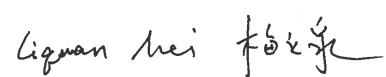 Liquan Mei 梅立泉